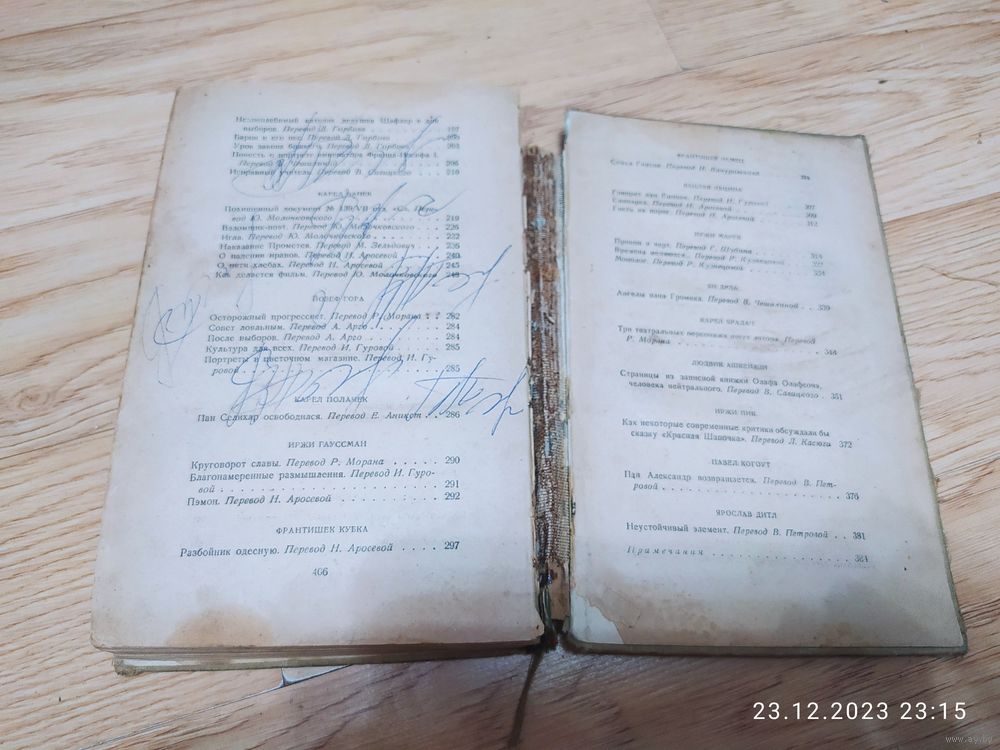 выборов. Перевод В. Горбова
Барон и его пес. Перевод Д. Горбова
Урок закона божьего. Перевод Д. Горбова 204
Повесть о портрете императора Франца-Иосифа I.
206
Исправный учитель. Перевод В. Савицкого 210
КАРЕЛ ЧАПЕК
Похищенный документ № 139/VII отд. «С». Пере-
вод Ю. Молочковского 219
Взломщик-поэт. Перевод Ю. Молочковского 226
Игла. Перевод Ю. Молочковского 232
Наказание Прометея. Перевод М. Зельдович
О падении нравов. Перевод Н. Аросевой 240
О пяти хлебах. Перевод Н. Аросевой 245
Как делается фильм. Перевод Ю. Молочковского 248
ЙОЗЕФ ГОРА
Осторожный прогрессист. Перевод Р. Морана 282
Совет лояльным. Перевод А. Арго 284
После выборов. Перевод А. Арго 284
Культура для всех. Перевод И. Гуровой 285
Портреты в цветочном магазине. Перевод И. Гу-
ровой 285
КАРЕЛ ПОЛАЧЕК
Пан Селихар освободился. Перевод Е. Аникст . . 286
ИРЖИ ГАУССМАН
Круговорот славы. Перевод Р. Морана . . . . . 290
Благонамеренные размышления. Перевод И. Гуро-
вой 291
Пэмон. Перевод Н. Аросевой 292
ФРАНТИШЕК КУБКА
Разбойник одесную. Перевод Н. Аросевой . . . . 297
466
ФРАНТИШЕК НЕМЕЦ
Перевод Н.
307
Самокрас. Перевод Н. Аросевой 309
Гость на порог. Перевод Н. Аросевой 312
ИРЖИ МАРЕК
Перевод Г. Шубина 314
Времена меняются. Перевод Р. Кузнецовой
Перевод Р. Кузнецовой 334
ЯН ДРДА
Ангелы пана Громека. Перевод В. Чешихиной . . 339
КАРЕЛ БРАДАЧ
Три театральных персонажа ищут автора. Перевод
Р. Морана 348
ЛЮДВИК АШКЕНАЗИ
Страницы из записной книжки Олафа Олафсона,
человека нейтрального. Перевод В. Савицкого . 351
ИРЖИ ПИК
Как некоторые современные критики обсуждали бы
сказку «Красная Шапочка». Перевод Л. Касюга 372
ПАВЕЛ КОГОУТ
Пан Александр возвращается. Перевод В. Пет-
ровой 376
ЯРОСЛАВ ДИТЛ
Неустойчивый элемент. Перевод В. Петровой . . 381
Примечания 384
23.12.2023 23:15
www.ay.by